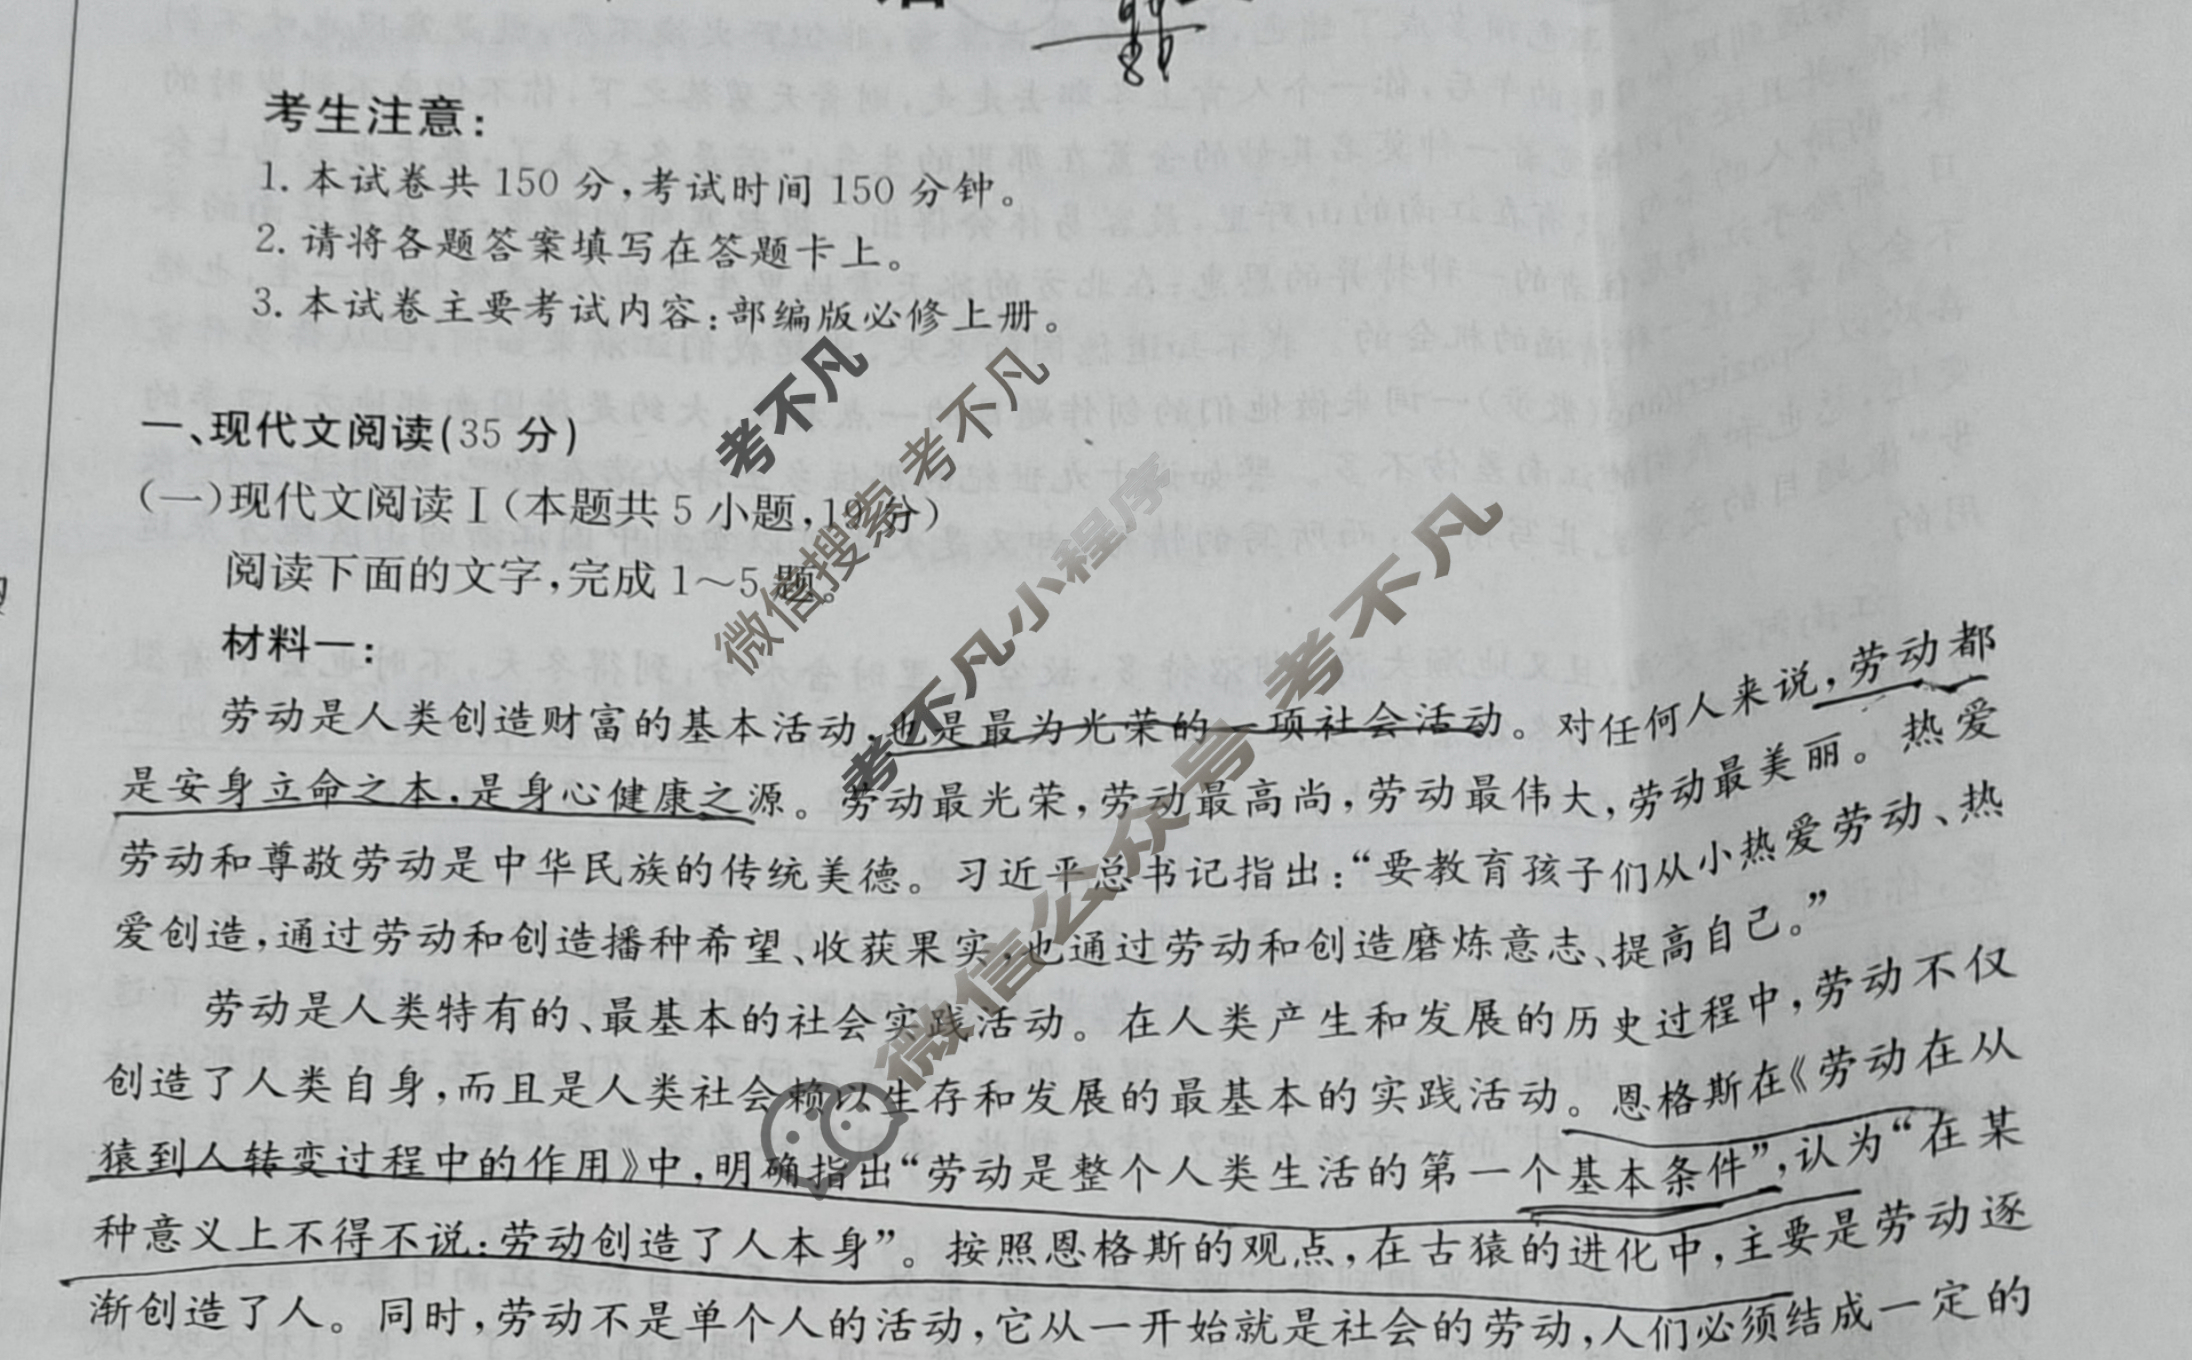 考生注意:
1. 本试卷共 150 分,考试时间 150 分钟。
2. 请将各题答案填写在答题卡上。
3. 本试卷主要考试内容:部编版必修上册。
一、现代文阅读(35 分)
(一)现代文阅读 I (本题共 5 小题,19 分)
阅读下面的文字,完成 1～5 题。
材料一:
劳动是人类创造财富的基本活动,也是最为光荣的一项社会活动。对任何人来说,劳动都
是安身立命之本,是身心健康之源。劳动最光荣,劳动最高尚,劳动最伟大,劳动最美丽。热爱
劳动和尊敬劳动是中华民族的传统美德。习近平总书记指出:“要教育孩子们从小热爱劳动、热
爱创造,通过劳动和创造播种希望、收获果实,也通过劳动和创造磨炼意志、提高自己。”
劳动是人类特有的、最基本的社会实践活动。在人类产生和发展的历史过程中,劳动不仅
创造了人类自身,而且是人类社会赖以生存和发展的最基本的实践活动。恩格斯在《劳动在从
猿到人转变过程中的作用》中,明确指出“劳动是整个人类生活的第一个基本条件”,认为“在某
种意义上不得不说:劳动创造了人本身”。按照恩格斯的观点,在古猿的进化中,主要是劳动逐
渐创造了人。同时,劳动不是单个人的活动,它从一开始就是社会的劳动,人们必须结成一定的
考不凡
微信搜索 考不凡
考不凡小程序
微信公众号 考不凡